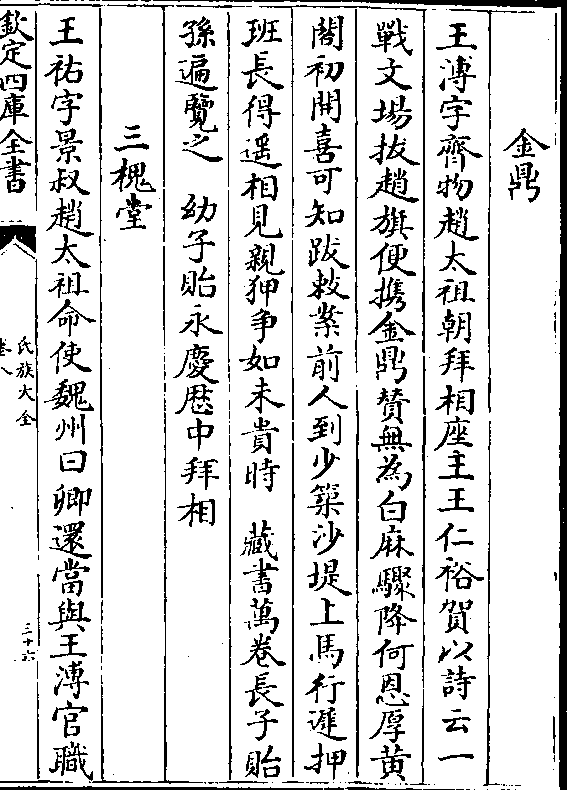 金鼎
王溥字齊物趙太祖朝拜相座主王仁裕賀以詩云一
戰文場拔趙旗便擕金鼎賛無為白麻驟降何恩厚黄
閣初開喜可知跋敕案前人到少築沙堤上馬行遲押
班長得遥相見親狎争如未貴時　藏書萬卷長子貽
孫遍覽之　幼子貽永慶厯中拜相
三槐堂
王祐字景叔趙太祖命使魏州曰卿還當與王溥官職
欽定四庫全書
氏族大全
卷八
三十六